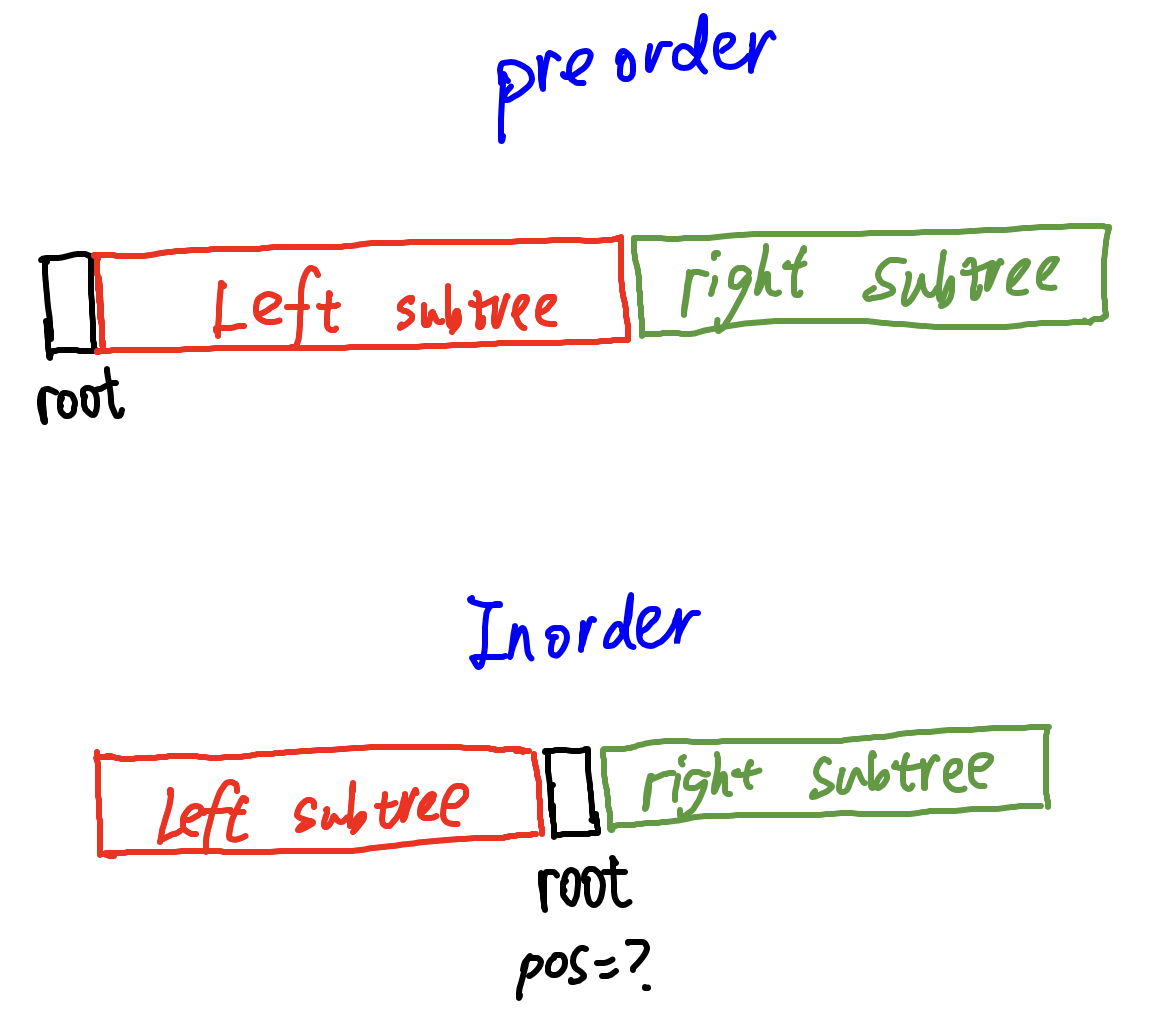 preorder
Left subtree right subtree
root
Inorder
Left subtree right subtree
root
pos=?